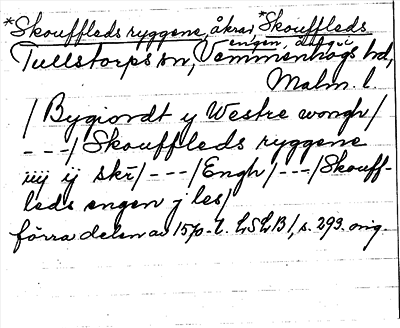 *Skouffleds ryggene, åkrar, *Skouffleds
engen,
Tullstorps sn, Vemmenhögs hd,
Malm. l
/ Bygiordt y Westre wongh/
---/ Skouffleds ryggene
iiij ij skr/ ---/ Engh/ ---/ Skouff-
leds engen j les/
förra delen av 1570-t. LSLB1, s. 293. orig.